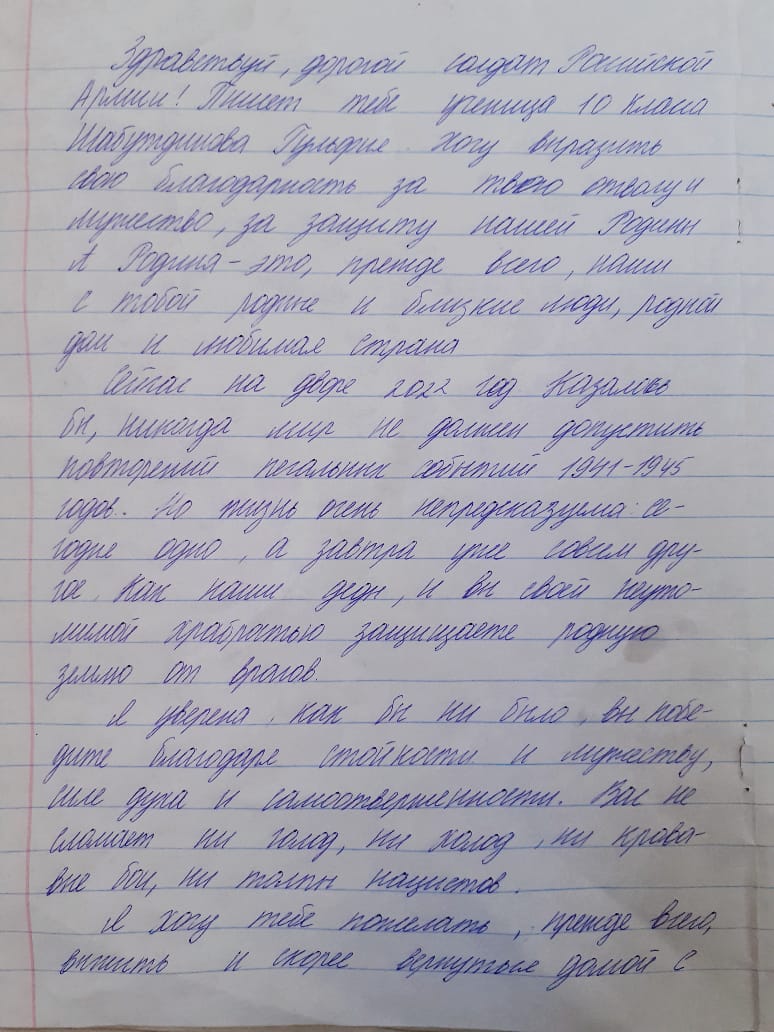 Здравствуй, дорогой солдат Российской
Армии! Пишет тебе ученица 10 класа
Шабутдинова Гульфие. Хочу выразить
свою благодарность за твою отвагу и
мужество, за защиту нашей Родины
А Родина - это, прежде всего, наши
с тобой родные и близкие люди, родной
дом и любимая страна
Сейчас на дворе 2022 год. Казалось
бы, никогда мир не должен допустить
повторений печальных событий 1941-1945
годов. Но жизнь очень непредсказуема: се-
годне одно, а завтра уже совсем дру-
гое. Как наши деды, и вы своей неуто-
мимой храбростью защищаете родную
землю от врагов.
Я уверена, как бы ни было, вы побе-
дите благодаре стойкости и мужеству,
силе духа и самоотверженности. Вас не
сломает ни голод, ни холод, ни крова-
вые бои, ни толпы нацистов.
Я хочу тебе пожелать, прежде всего,
выжить и скорее вернуться домой с